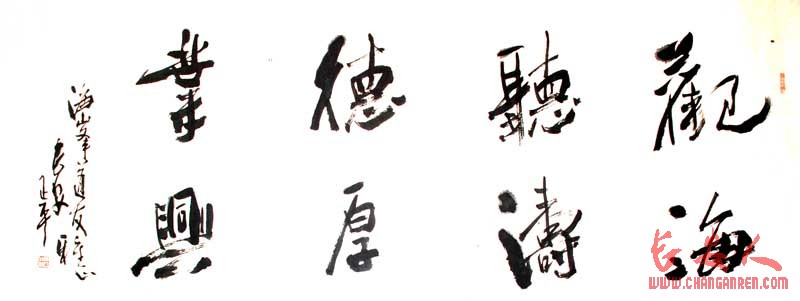 觀海
聽濤
德厚
業興
海峯道友
長安
长安人
WWW.CHANGANREN.COM